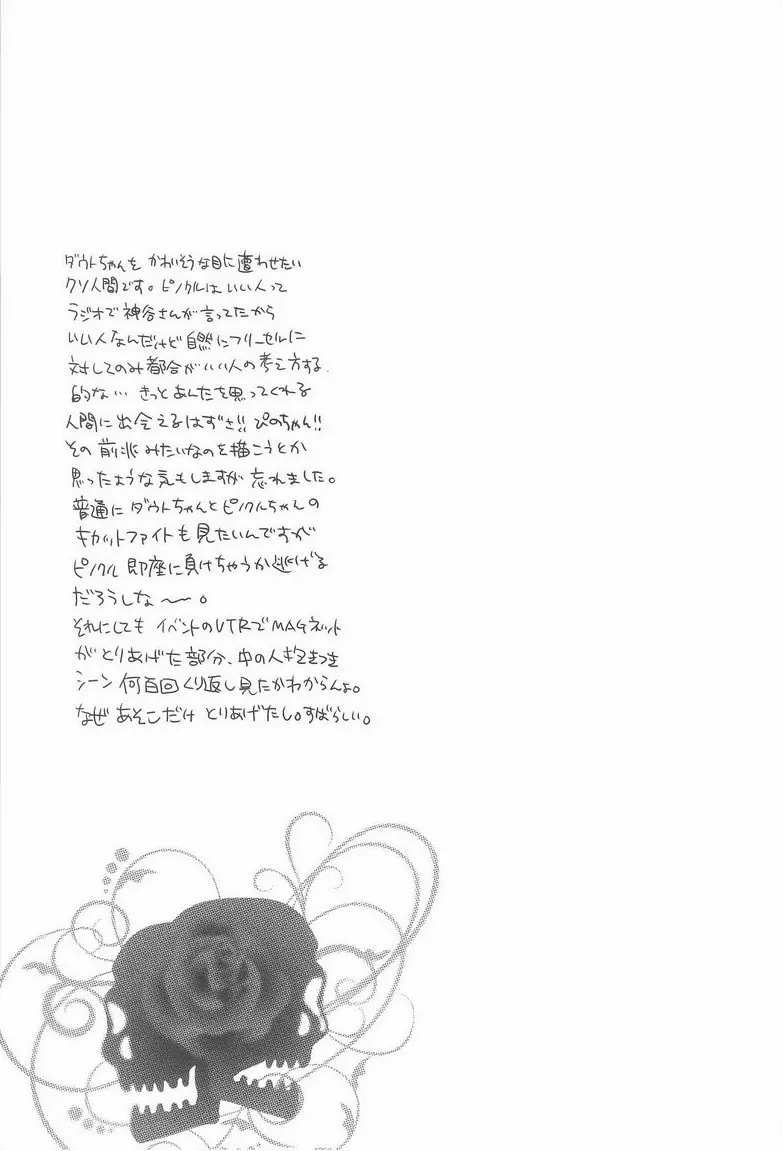 ダウトちゃんを かわいそうな目に遭わせたい
クソ人間です。ピノクルはいい人って
ラジオで神谷さんが言ってたから
いい人なんだけど自然にフリーセルに
対してのみ都合がいい人の考え方する
的な… きっとあんたを思ってくれる
人間に出会えるはずさ!! ぴのちゃん!!
その前兆みたいなのを描こうとか
思ったような気もしますが忘れました。
普通にダウトちゃんとピノクルちゃんの
キャットファイトも見たいんですが
ピノクル 即座に負けちゃうか逃げる
だろうしな〜〜。
それにしても イベントのVTRでMAGネット
がとりあげた部分、中の人抱きつき
シーン 何百回くり返し見たかわからんよ。
なぜ あそこだけ とりあげたし。すばらしい。